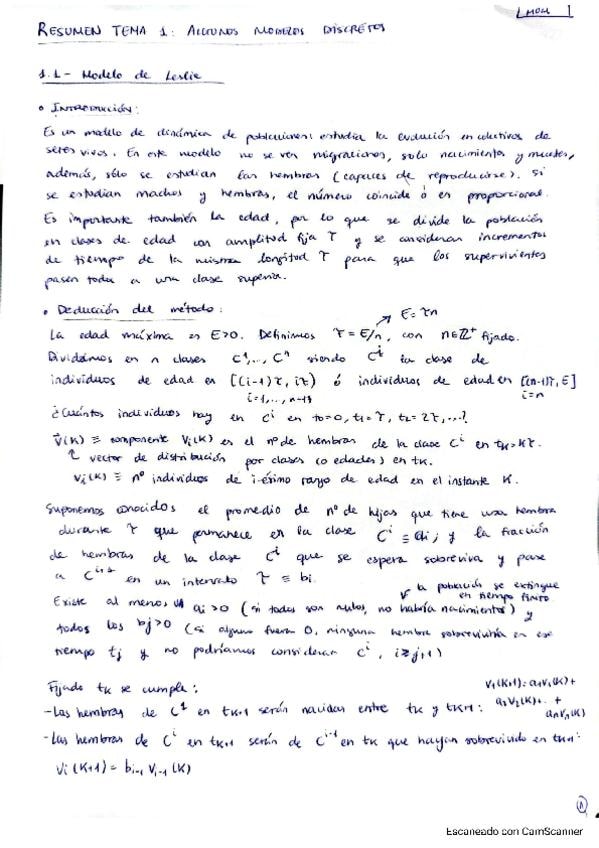 LMOM 1
RESUMEN TEMA 1: ALGUNOS MODELOS DISCRETOS
1.1- Modelo de Leslie
• INTRODUCCIÓN:
Es un modelo de dinámica de poblaciones: estudia la evolución en colectivos de
seres vivos. En este modelo no se ven migraciones, solo nacimientos y muertes,
además, sólo se estudian las hembras (capaces de reproducirse). Si
se estudian machos y hembras, el número coincide ó es proporcional.
Es importante también la edad, por lo que se divide la población
en clases de edad con amplitud fija τ y se consideran incrementos
de tiempo de la misma longitud τ para que los supervivientes
pasen todos a una clase superior.
• Deducción del método:
E = τn
La edad máxima es E>0. Definimos τ = E/n, con n∈ℤ⁺ fijado.
Dividimos en n clases C¹,..., Cⁿ siendo Cⁱ la clase de
individuos de edad en [(i-1)τ, iτ) ó individuos de edad en [(n-1)τ, E]
i=1,..., n-1 i=n
¿Cuántos individuos hay en Cⁱ en t₀=0, t₁=τ, t₂=2τ,...?
v⃗(K) ≡ componente Vi(K) es el nº de hembras de la clase Cⁱ en tk=Kτ.
vector de distribución por clases (o edades) en tk.
vi(K) ≡ nº individuos de i-ésimo rango de edad en el instante K.
Suponemos conocidos el promedio de nº de hijas que tiene una hembra
durante τ que permanece en la clase Cⁱ ≡ ai, y la fracción
de hembras de la clase Cⁱ que se espera sobreviva y pase
a Cⁱ⁺¹ en un intervalo τ ≡ bi.
la población se extingue
en tiempo finito
Existe al menos un ai>0 (si todos son nulos, no habría nacimientos) y
todos los bj>0 (si alguno fuera 0, ninguna hembra sobreviviría en ese
tiempo tj y no podríamos considerar Cⁱ, i≥j+1)
Fijado tk se cumple:
- Las hembras de C¹ en tk+1 serán nacidas entre tk y tk+1: V1(K+1) = a1V1(K) + a2V2(K)+..+ anVn(K)
- Las hembras de Cⁱ en tk+1 serán de Cⁱ⁻¹ en tk que hayan sobrevivido en tk+1:
Vi(K+1) = bi-1 Vi-1(K)
1
Escaneado con CamScanner